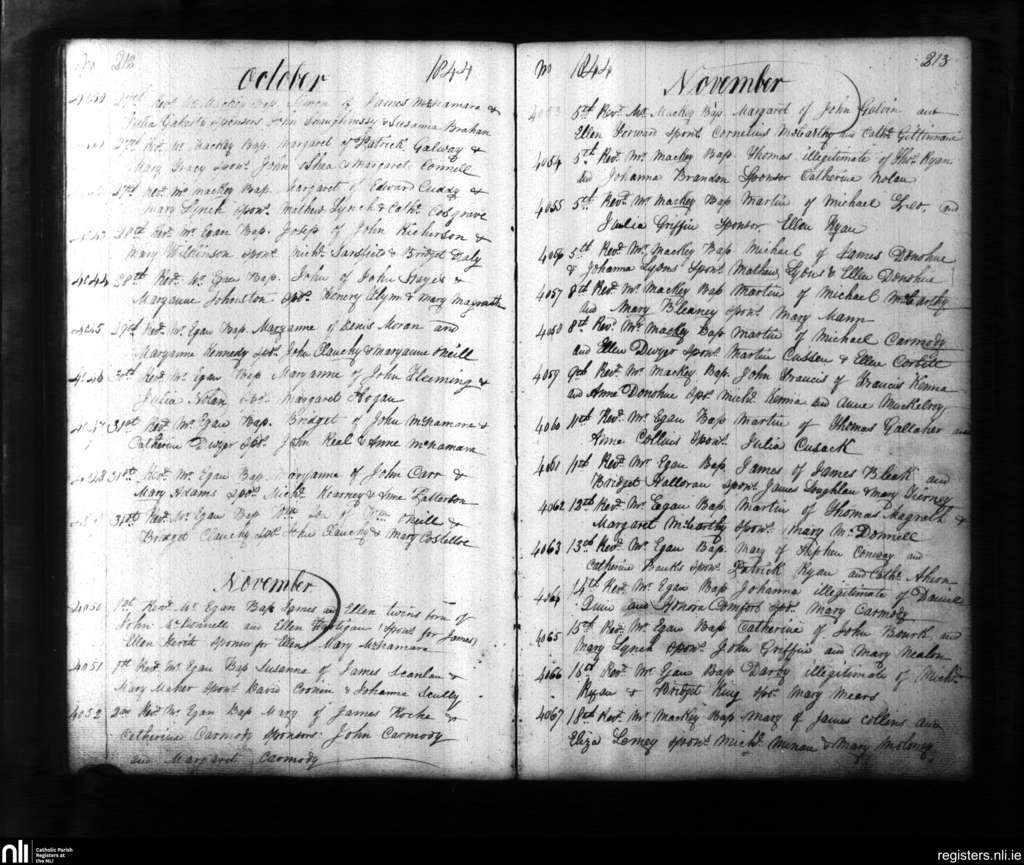 No 212 October 1844
Revd Mr Mackey Bap. of James McNamara &
Julia Sponsors John & Susanna Braham
Revd Mr Mackey Bap. Margaret of Patrick Galway &
Mary Tracy Spons. John Shea & Margaret Connell
27th Revd Mr Mackey Bap. Margaret of Edward Cuddy &
Mary Lynch Spons. Mathew Lynch & Cath. Cosgrave
Revd Mr Egan Bap. Joseph of John Hickerson &
Mary Wilkinson Spons. Michl & Bridget Daly
4044 28th Revd Mr Egan Bap. John of John Hayes &
Maryanne Johnston Spt. Henery Glynn & Mary Magrath
4045 29th Revd Mr Egan Bap. Maryanne of Denis Moran and
Maryanne Kennedy Spt. John Clauchy & Maryanne ONeill
4046 30th Revd Mr Egan Bap Maryanne of John Fleeming &
Julia Nolan Spt. Margaret Hogan
4047 31st Revd Mr Egan Bap. Bridget of John McNamara &
Catherine Dwyer Spt. John Neal & Anne McNamara
4048 31st Revd Mr Egan Bap Maryanne of John Carr &
Mary Adams Spt. Michl Kearney & Anne Patterson
31st Revd Mr Egan Bap Wm of Wm ONeill &
Bridget Clauchy Spt. John Clauchy & Mary Costelloe
November
4050 1st Revd Mr Egan Bap James and Ellen twins born of
John McDonnell and Ellen Hartigan (Spons for James)
Ellen North Sponsor for Ellen) Mary McNamara
4051 1st Revd Mr Egan Bap Susanna of James Scanlan &
Mary Maher Spons David Cronin & Johanna Scully
4052 2nd Revd Mr Egan Bap Mary of James Roche &
Catherine Carmody Sponsors John Carmody
and Margaret Carmody
No 1844 November 213
4053 5th Revd Mr Mackey Bap. Margaret of John Galvin and
Ellen Forward Spons Cornelius McCarthy & Cath.
4054 5th Revd Mr Mackey Bap Thomas illegitimate of Thos Ryan
and Johanna Brandon Sponsor Catherine Nolan
4055 5th Revd Mr Mackey Bap Martin of Michael and
Julia Griffin Sponsor, Ellen Ryan
4056 5th Revd Mr Mackey Bap Michael of James Donohue
& Johanna Lyons Spons Mathew Lyons & Ellen Donohue
4057 8th Revd Mr Mackey Bap Martin of Michael McCarthy
and Mary Spons Mary Mann
4058 8th Revd Mr Mackey Bap Martin of Michael Carmody
and Ellen Dwyer Spons Martin Cussen & Ellen Corbett
4059 9th Revd Mr Mackey Bap John Francis of Francis Kenna
and Anne Donohue Spt Michl Kenna and Anne Muckelroy
4060 11th Revd Mr Egan Bap Martin of Thomas Gallaher and
Anna Collins Spons. Julia Cusack
4061 11th Revd Mr Egan Bap. James of James Bleak and
Bridget Halloran Spons James Loughlan & Mary Kierney
4062 13th Revd Mr Eagan Bap. Martin of Thomas Magrath &
Margaret McCarthy Spons. Mary McDonnell
4063 13th Revd Mr Egan Bap. Mary of Stephen Conway and
Catherine Banks Spons Patrick Ryan and Cathe Ahern
4064 14th Revd Mr Egan Bap Johanna illegitimate of Daniel
Quin and Honora Comfort Spt. Mary Carmody
4065 15th Revd Mr Egan Bap Catherine of John Bourk and
Mary Lynch Spons John Griffin and Mary Mealon
4066 16th Revd Mr Egan Bap Darby illegitimate of Michl
Ryan & Bridget King Spt. Mary Mears
4067 18th Revd Mr Mackey Bap Mary of James Collins and
Eliza Spons Michl & Mary Moloney
nli Catholic Parish
Registers at
the NLI
registers.nli.ie